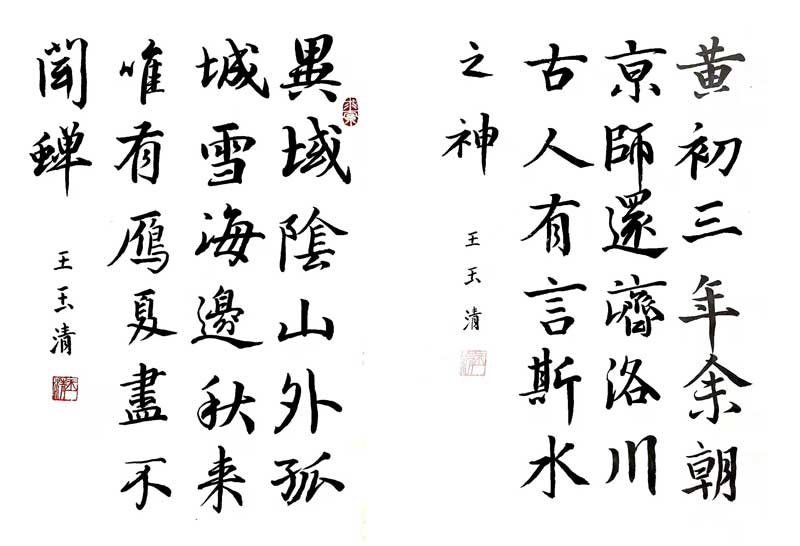 黄初三年余朝
京師還濟洛川
古人有言斯水
之神
王玉清
異域陰山外孤
城雪海邊秋来
唯有鴈夏盡不
聞蟬
王玉清